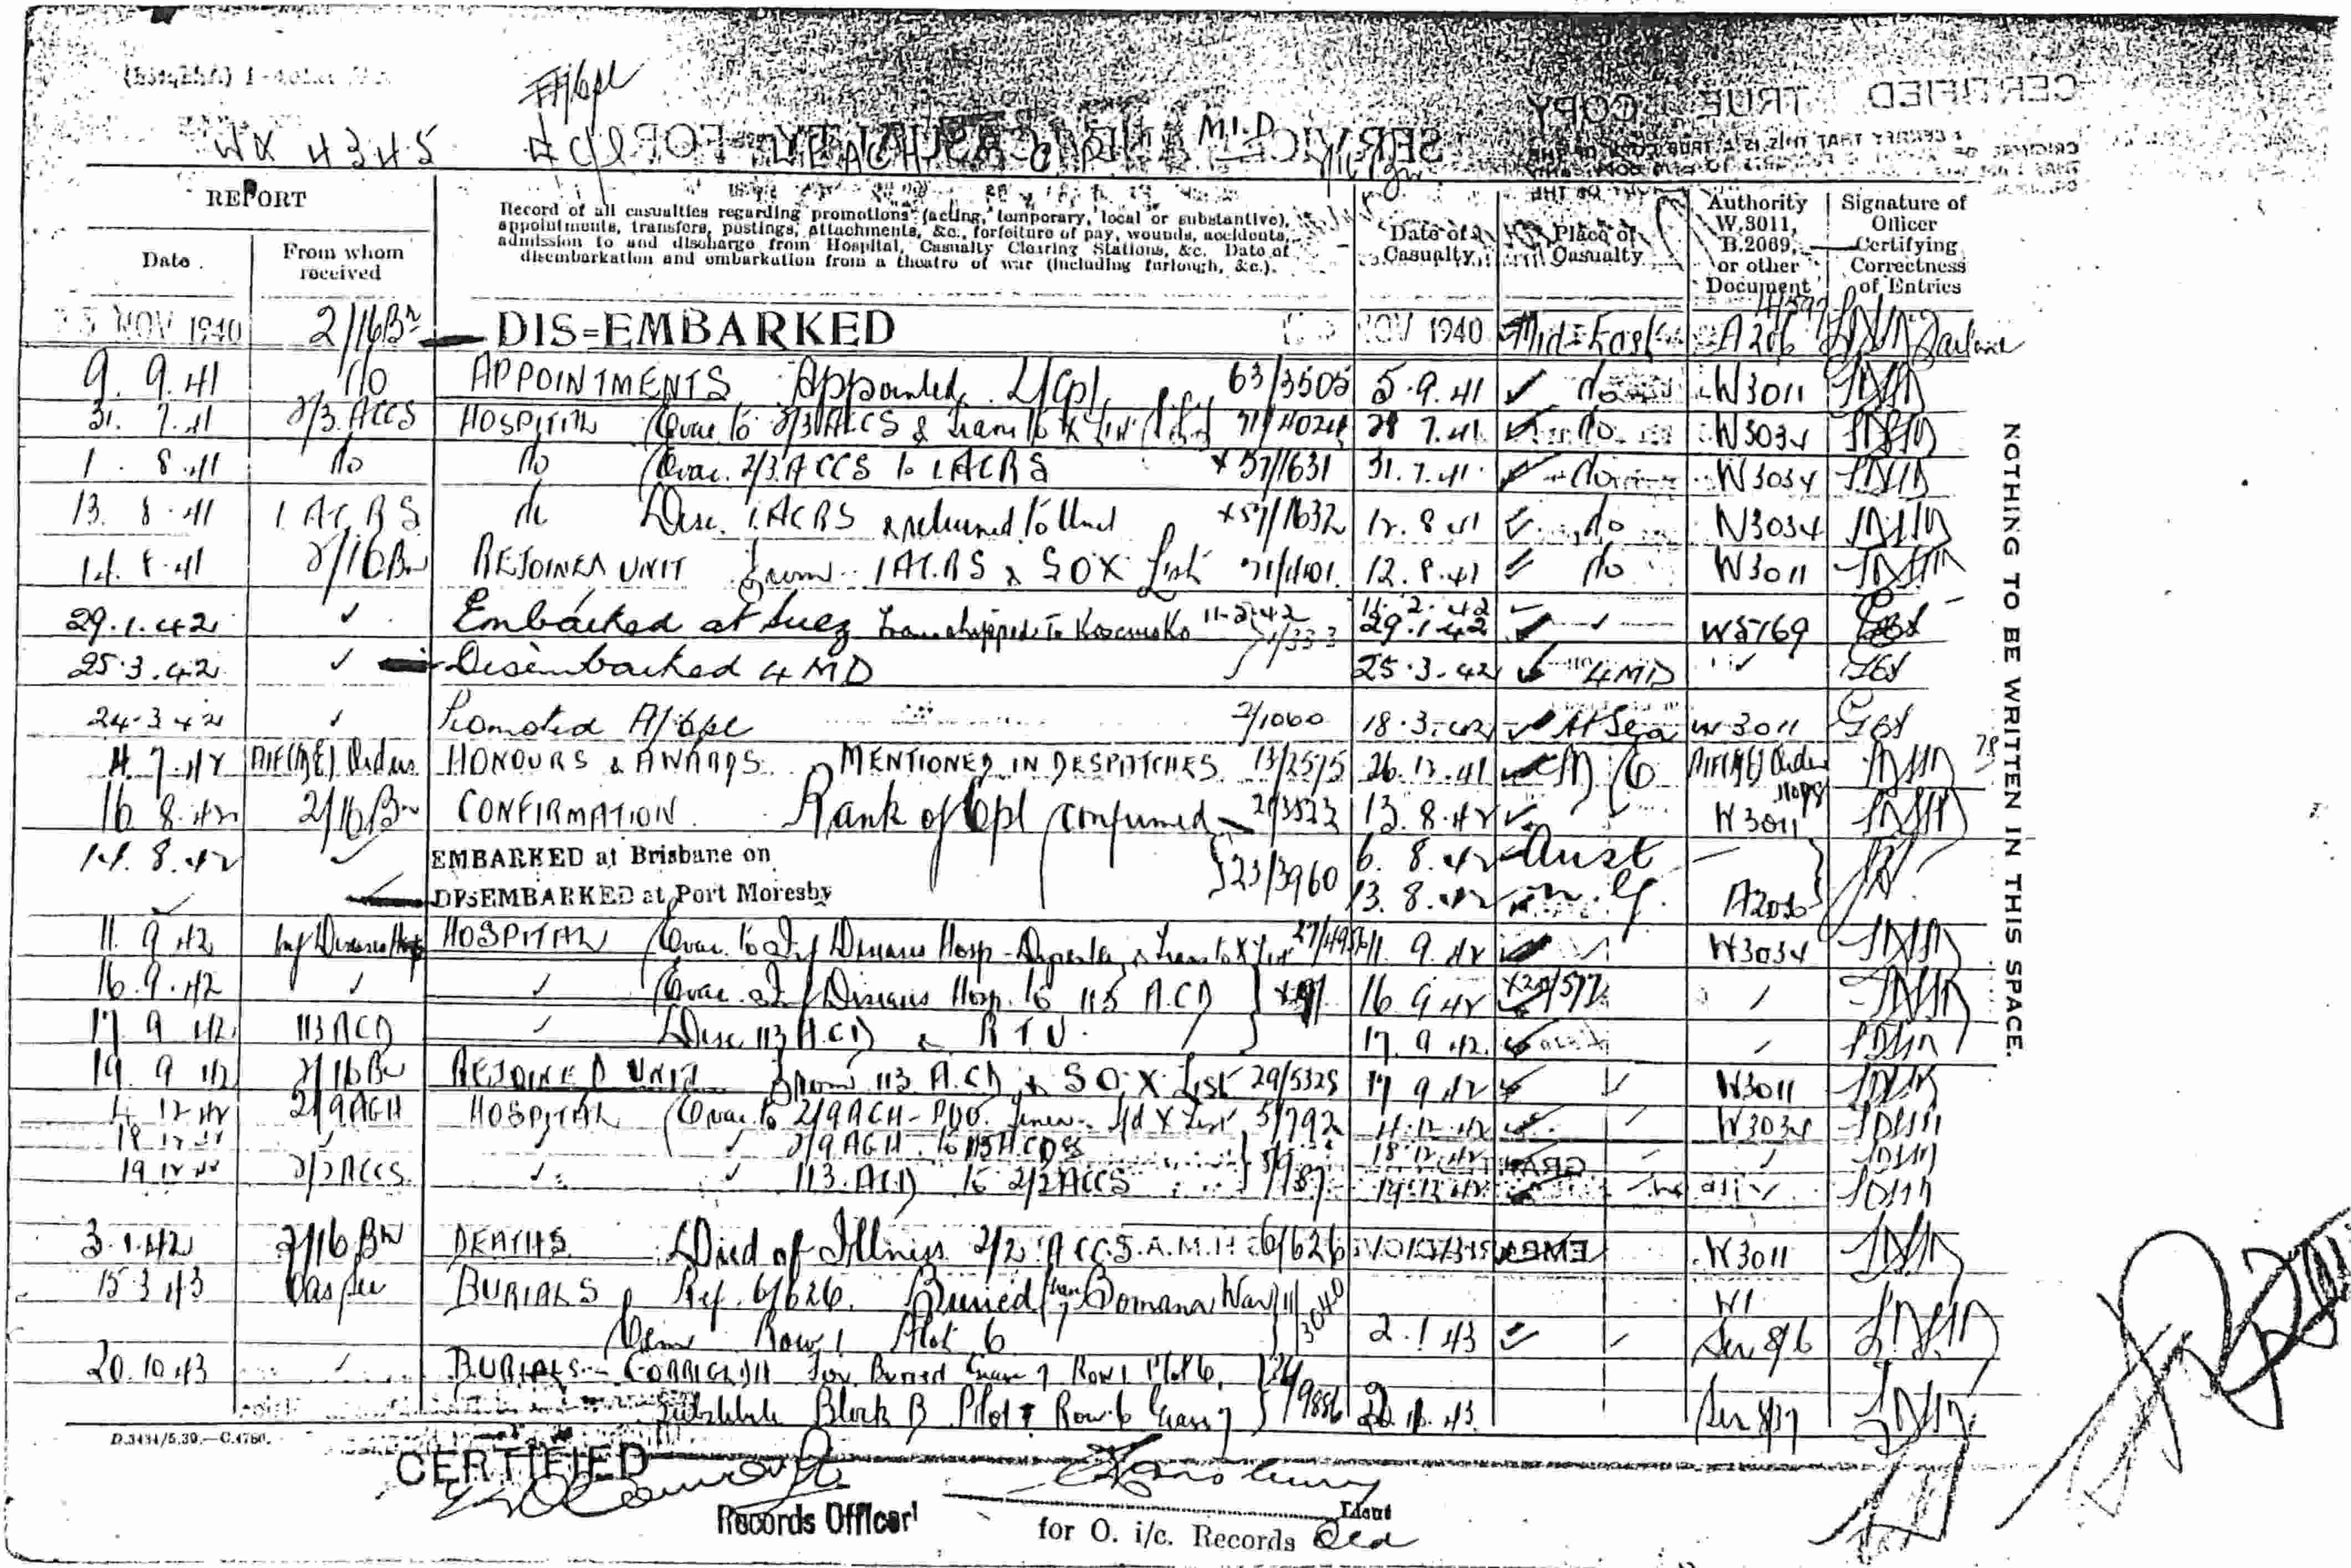 WX 4345
M.I.D
CERTIFIED TRUE COPY
REPORT
Date
From whom received
Record of all casualties regarding promotions (acting, temporary, local or substantive),
appointments, transfers, postings, attachments, &c., forfeiture of pay, wounds, accidents,
admission to and discharge from Hospital, Casualty Clearing Stations, &c. Date of
disembarkation and embarkation from a theatre of war (including furlough, &c.).
Date of Casualty
Place of Casualty
Authority W.3011, B.2069, or other Document
Signature of Officer Certifying Correctness of Entries
NOV 1940 2/16 Bn DIS=EMBARKED NOV 1940 Mid-East A206
9.9.41 do APPOINTMENTS Appointed L/Cpl 63/3505 5.9.41 do W3011
31.7.41 2/3 ACCS HOSPITAL Evac to 2/3 ACCS & trans to X List 28 7.41 do W3034
1.8.41 do do Evac. 2/3 ACCS to 1 ACRS X57/1631 31.7.41 do W3034
13.8.41 1 ACRS do Disc. 1 ACRS & returned to Unit X57/1632 12.8.41 do W3034
14.8.41 2/16 Bn REJOINED UNIT from 1 ACRS & SOX List 12.8.41 do W3011
29.1.42 Embarked at Suez Transhipped to Kosciusko 11-2-42 29.1.42 W5769
25.3.42 Disembarked 4 MD 25.3.42 4MD
24.3.42 Promoted A/Cpl 2/1060 18.3.42 At Sea W3011
4.7.42 AIF(ME) Orders HONOURS & AWARDS MENTIONED IN DESPATCHES 13/2575 26.12.41 AIF(ME) Order
16.8.42 2/16 Bn CONFIRMATION Rank of Cpl confirmed 21/3523 13.8.42 W3011
14.8.42 EMBARKED at Brisbane on 23/3960 6.8.42 Aust
DISEMBARKED at Port Moresby 13.8.42 N.G. A206
11.9.42 Inf Diseases Hosp HOSPITAL Evac to Inf Diseases Hosp - Dysentery & trans to X List 11.9.42 W3034
16.9.42 Evac. Inf Diseases Hosp. to 113 ACD 16.9.42
17.9.42 113 ACD Disc 113 ACD & RTU 17.9.42
19.9.42 2/16 Bn REJOINED UNIT from 113 ACD & SOX List 29/5325 17 9 42 W3011
4.12.42 2/9 AGH HOSPITAL Evac to 2/9 AGH - PUO. X List 5/792 4.12.42 W3034
18.12.42 2/9 AGH to 113 ACD 18.12.42
19.12.42 2/2 ACCS 113 ACD to 2/2 ACCS 19.12.42
3.1.42 2/16 Bn DEATHS Died of Illness 2/2 ACCS 6/626 W3011
15.3.43 BURIALS Ref. 6/626. Buried Bomana War
Cem Row 1 Plot 6 3040 2.1.43 Ser 8/6
20.10.43 BURIALS - CORRIGENDA For Buried Grave 7 Row 1 Plot 6,
Substitute Block B Row 6 Grave 7 /9886 Ser 8/37
NOTHING TO BE WRITTEN IN THIS SPACE.
D.3434/5.39.—C.4760.
CERTIFIED
Records Officer
Lieut
for O. i/c. Records Qld